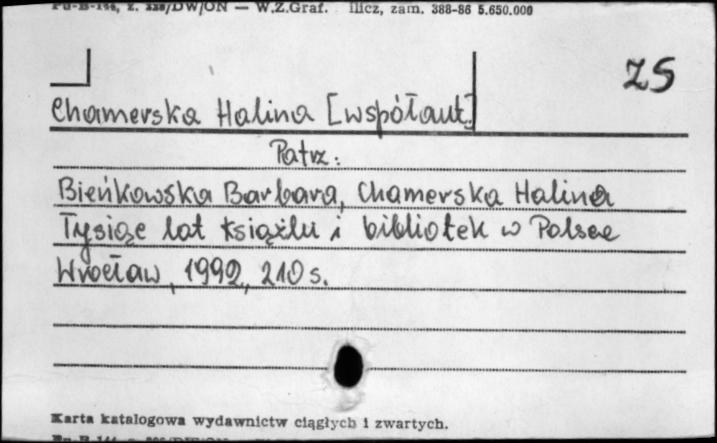 W.Z.Graf. Ilicz, zam. 388-86 5.650.000
ZS
Chamerska Halina [współaut.]
Patrz:
Bieńkowska Barbara, Chamerska Halina
Tysiąc lat książki i bibliotek w Polsce
Wrocław, 1992, 210 s.
Karta katalogowa wydawnictw ciągłych i zwartych.